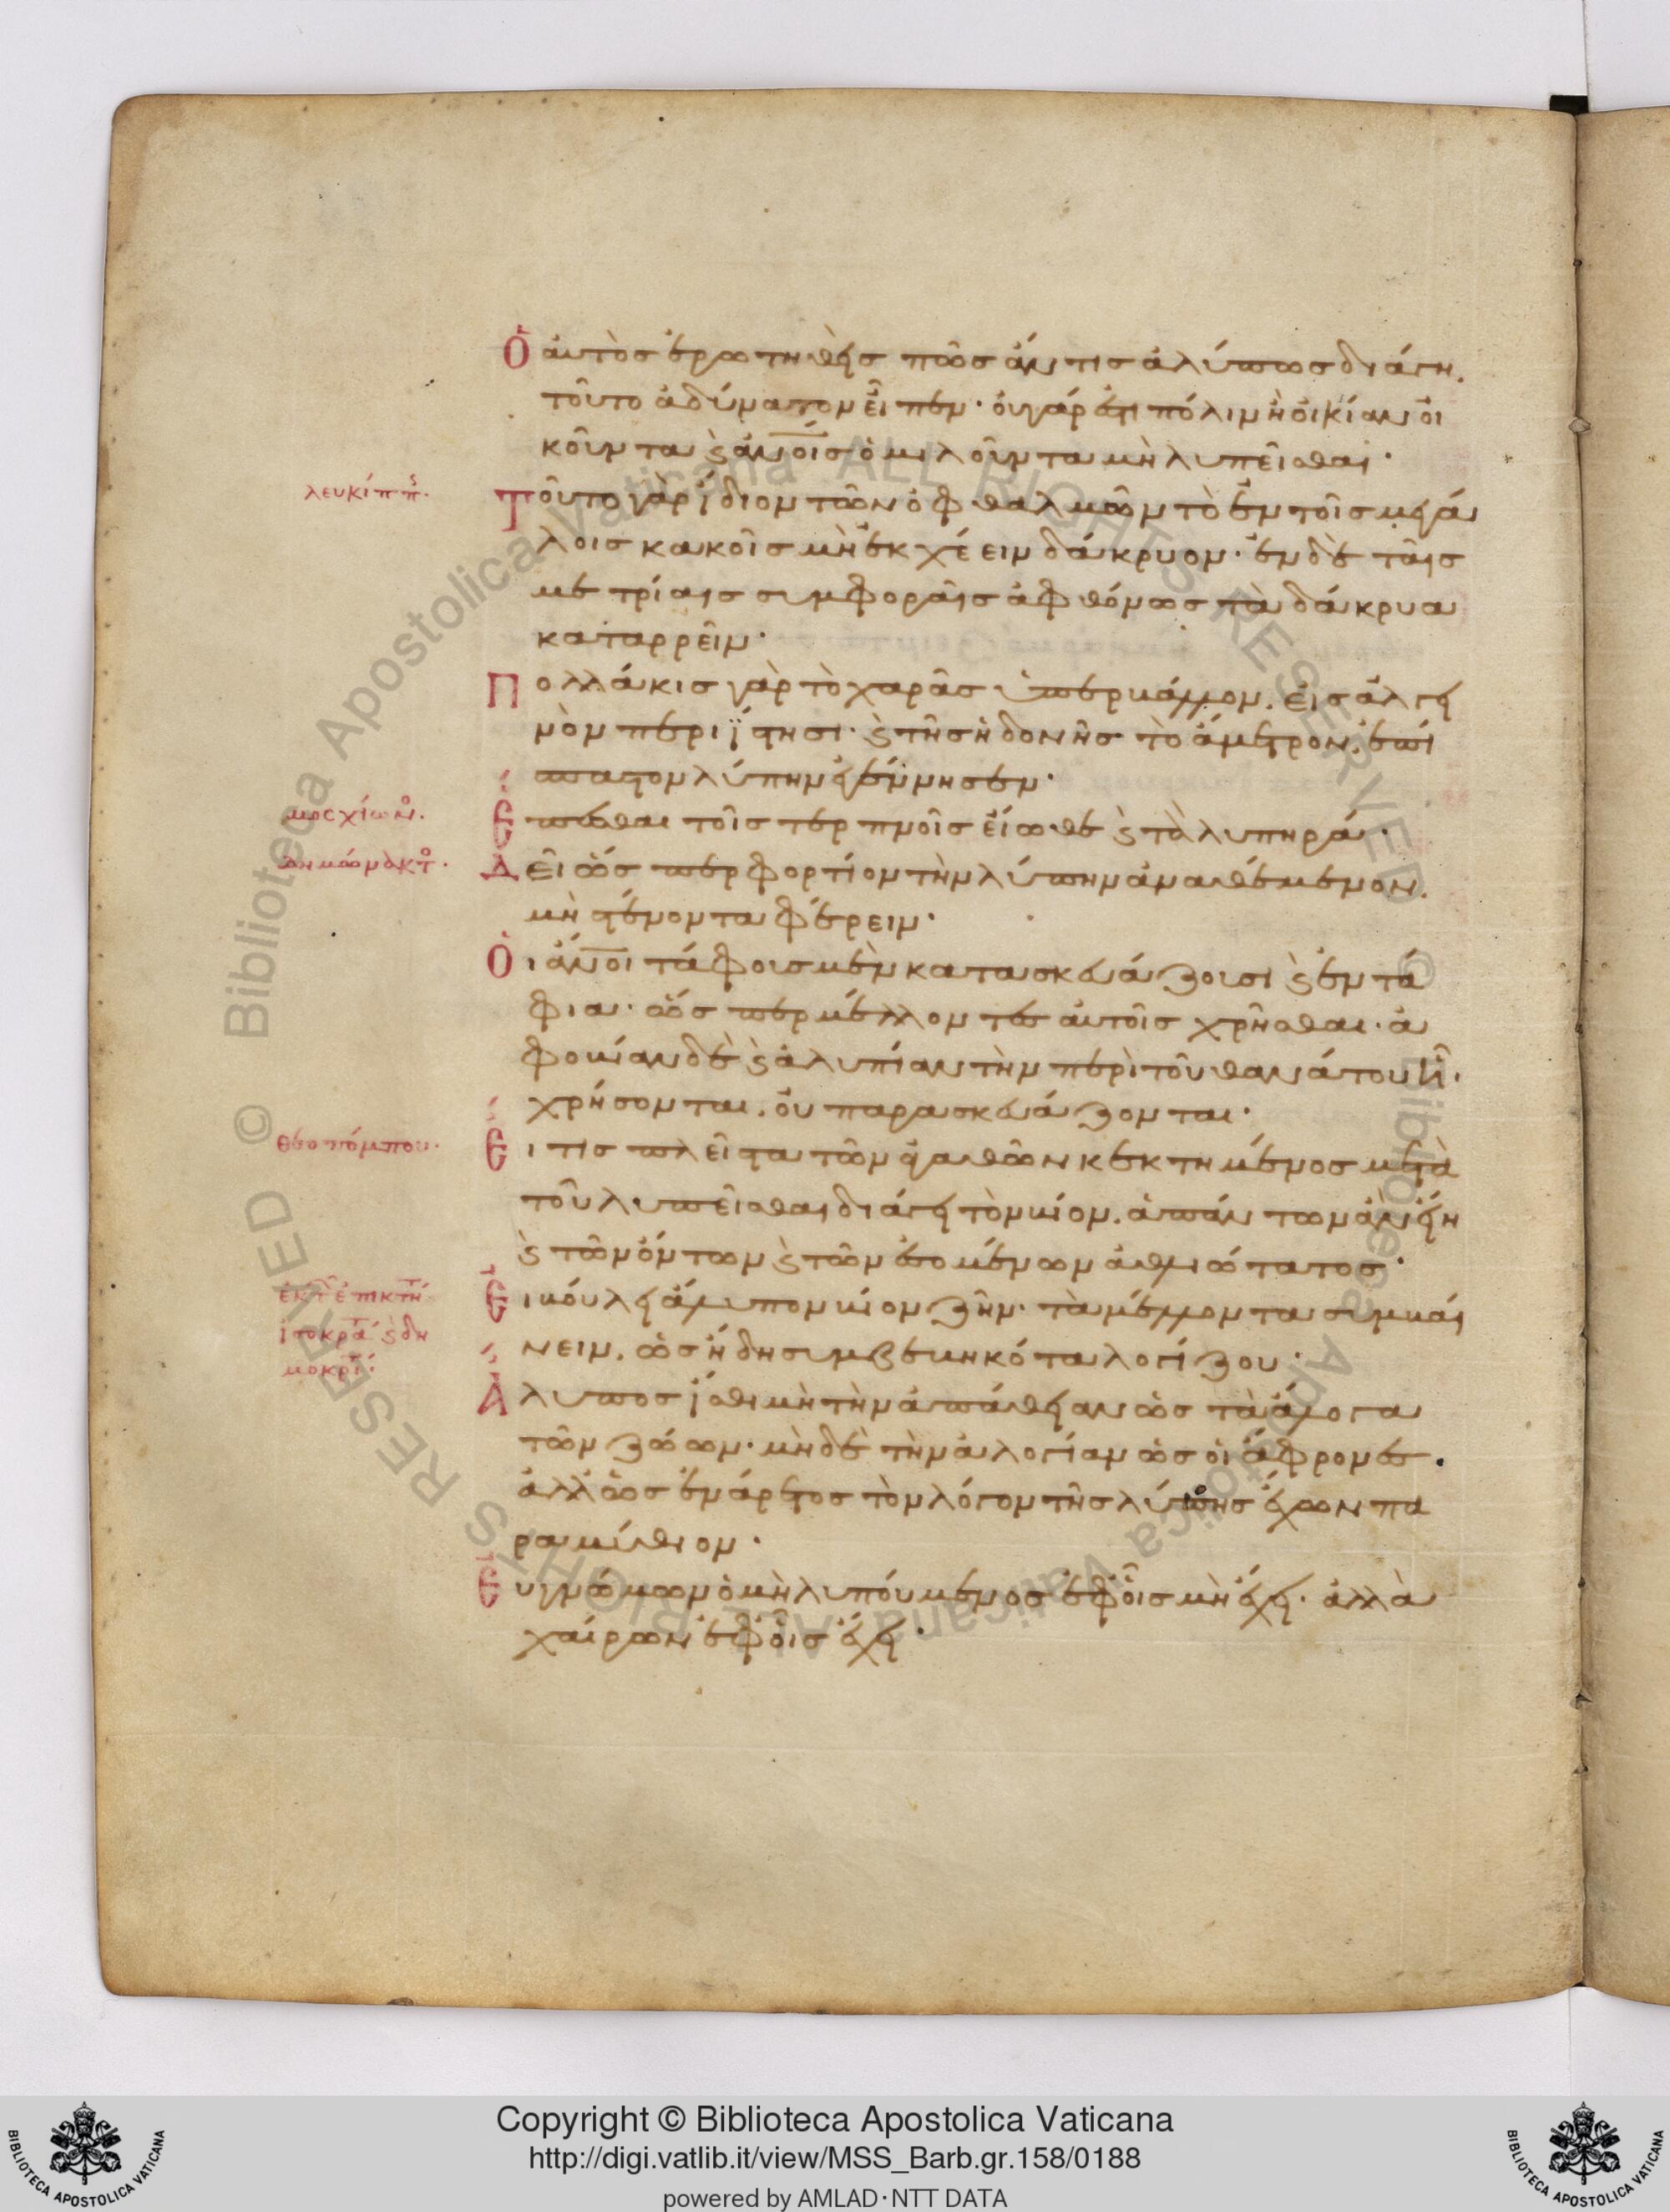 Ὁ αὐτὸς ἐρωτηθεὶς πῶς ἄν τις ἀλύπως διάγη.
τοῦτο ἀδύνατον εἶπεν· οὐ γάρ ἐστι πόλιν ἢ οἰκίαν οἰ
κοῦντα ϗ ἀνοῖς ὁμιλοῦντα μὴ λυπεῖσθαι·
λευκίππ.
Τοῦτο γὰρ ἴδιον τῶν ὀφθαλμῶν τὸ ἐν τοῖς μεγά
λοις κακοῖς μὴ ἐκχέειν δάκρυον· ἐν δὲ ταῖς
μετρίαις συμφοραῖς ἀφθόνως τὰ δάκρυα
καταρρεῖν·
Πολλάκις γὰρ τὸ χαρᾶς ὑπερβάλλον. εἰς ἀλγει
νὸν περιΐστησι· ϗ τῆς ἡδονῆς τὸ ἄμετρον. ἐπί
σπαστον λύπην ἐγέννησεν·
μοσχίων.
Ἕπεσθαι τοῖς τερπνοῖς εἴωθε ϗ τὰ λυπηρά·
δημώνακτ.
Δεῖ ὥσπερ φορτίον τὴν λύπην
μὴ στένοντα φέρειν·
Οἱ ἄνοι τάφους μὲν κατασκευάζουσι ϗ ἐντά
φια· ὥσπερ μέλλοντες αὐτοῖς χρῆσθαι· ἀ
φοβίαν δὲ ϗ ἀλυπίαν τὴν περὶ τοῦ θανάτου ᾗ
χρήσονται. οὐ παρασκευάζονται·
θεοπόμπου.
Εἴ τις πλεῖστα τῶν ἀγαθῶν κεκτημένος μετὰ
τοῦ λυπεῖσθαι διάγει τὸν βίον. ἁπάντων ἂν εἴη
ϗ τῶν ὄντων ϗ τῶν ἐσομένων ἀθλιώτατος·
ἐκ τ ἐπικτή
ἰσοκρά ϗ δη
μοκρί
Εἰ βούλει ἄλυπον βίον ζῆν· τὰ μέλλοντα συμβαί
νειν. ὡς ἤδη συμβεβηκότα λογίζου·
Ἄλυπος ἴσθι μὴ τὴν ἀπάθειαν ὡς τὰ ἄλογα
τῶν ζώων· μὴ δὲ τὴν ἀλογίαν ὡς οἱ ἄφρονες.
ἀλλ' ὡς ἐνάρετος τὸν λόγον τῆς λύπης ἔχων πα
ραμύθιον·
Εὐγνώμων ὁ μὴ λυπούμενος ἐφ' οἷς μὴ ἔχει· ἀλλὰ
χαίρων ἐφ' οἷς ἔχει·
Copyright © Biblioteca Apostolica Vaticana
http://digi.vatlib.it/view/MSS_Barb.gr.158/0188
powered by AMLAD·NTT DATA